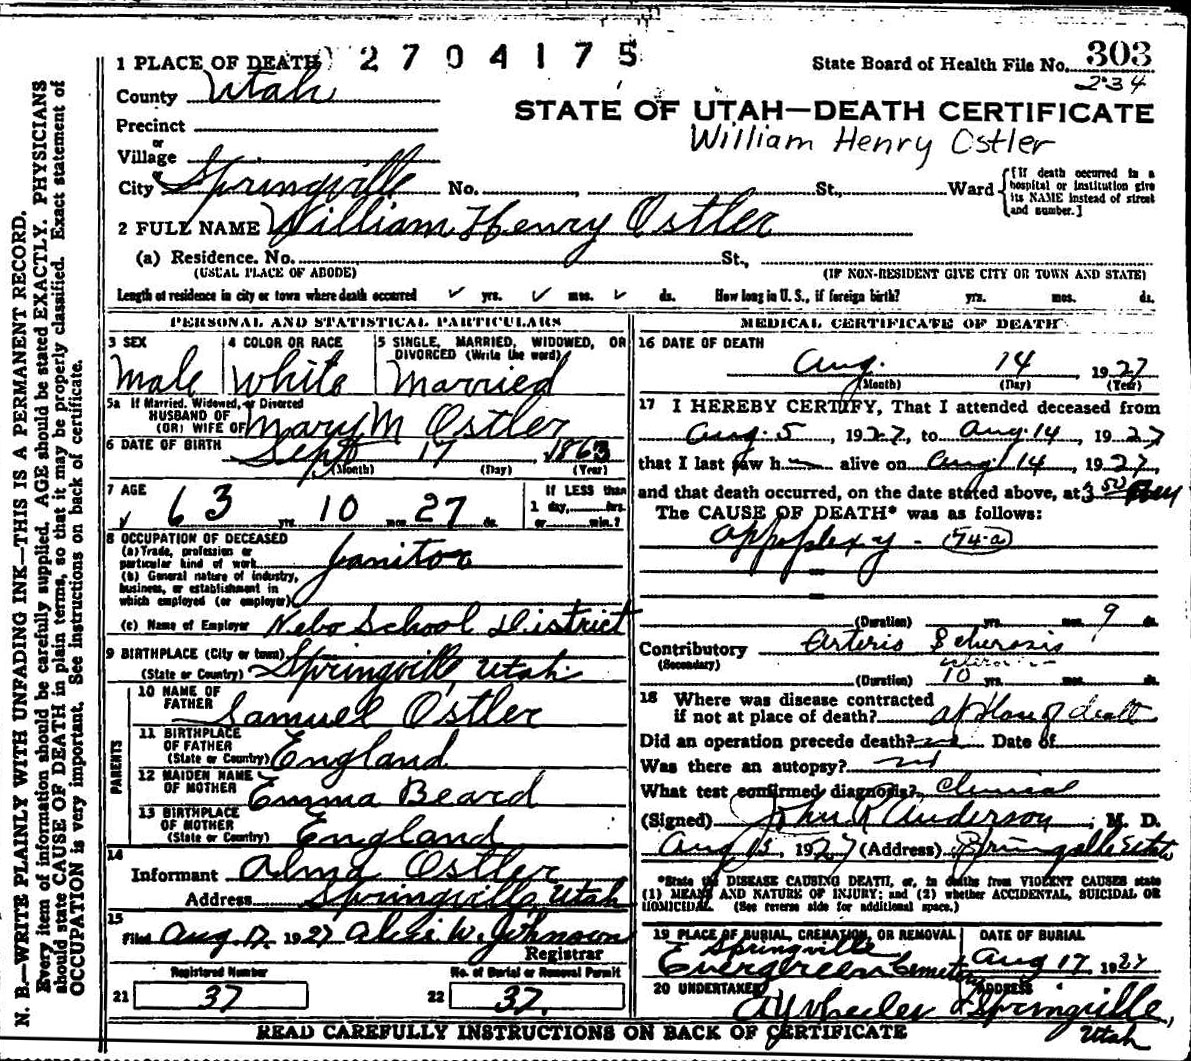 2704175
State Board of Health File No. 303
234
1 PLACE OF DEATH
County Utah
STATE OF UTAH—DEATH CERTIFICATE
William Henry Ostler
Precinct
or
Village
City Springville No. St., Ward
[If death occurred in a hospital or institution give its NAME instead of street and number.]
2 FULL NAME William Henry Ostler
(a) Residence. No. St.,
(USUAL PLACE OF ABODE) (IF NON-RESIDENT GIVE CITY OR TOWN AND STATE)
Length of residence in city or town where death occurred yrs. mos. ds. How long in U. S., if foreign birth? yrs. mos. ds.
PERSONAL AND STATISTICAL PARTICULARS
3 SEX
Male
4 COLOR OR RACE
White
5 SINGLE, MARRIED, WIDOWED, OR DIVORCED (Write the word)
Married
5a If Married, Widowed, or Divorced
HUSBAND OF
(OR) WIFE OF Mary M Ostler
6 DATE OF BIRTH Sept 17 1863
(Month) (Day) (Year)
7 AGE
63 yrs. 10 mos. 27 ds.
If LESS than
1 day, hrs.
or min.?
8 OCCUPATION OF DECEASED
(a) Trade, profession or
particular kind of work Janitor
(b) General nature of industry,
business, or establishment in
which employed (or employer)
(c) Name of Employer Nebo School District
9 BIRTHPLACE (City or town)
(State or Country) Springville, Utah
PARENTS
10 NAME OF
FATHER Samuel Ostler
11 BIRTHPLACE
OF FATHER
(State or Country) England
12 MAIDEN NAME
OF MOTHER Emma Beard
13 BIRTHPLACE
OF MOTHER
(State or Country) England
14
Informant Alma Ostler
Address Springville, Utah
15
Filed Aug 17, 1927 W. Johnson
Registrar
Registered Number No. of Burial or Removal Permit
21 37 22 37.
MEDICAL CERTIFICATE OF DEATH
16 DATE OF DEATH
Aug. 14, 1927
(Month) (Day) (Year)
17 I HEREBY CERTIFY, That I attended deceased from
Aug. 5, 1927, to Aug. 14, 1927
that I last saw h alive on Aug. 14, 1927,
and that death occurred, on the date stated above, at 3 50
The CAUSE OF DEATH* was as follows:
Appoplexy - 74-a
(Duration) yrs. mos. 9 ds.
Contributory Arterio Sclerosis
(Secondary)
(Duration) 10 yrs. mos. ds.
18 Where was disease contracted
if not at place of death? at place of death
Did an operation precede death? no Date of
Was there an autopsy? no
What test confirmed diagnosis? Clinical
(Signed) John R Anderson, M. D.
Aug 15, 1927 (Address) Springville Utah
*State the DISEASE CAUSING DEATH, or, in deaths from VIOLENT CAUSES state
(1) MEANS AND NATURE OF INJURY; and (2) whether ACCIDENTAL, SUICIDAL OR
HOMICIDAL. (See reverse side for additional space.)
19 PLACE OF BURIAL, CREMATION, OR REMOVAL
Springville
Evergreen Cemetery
DATE OF BURIAL
Aug 17 1927
20 UNDERTAKER
A Y Wheeler
ADDRESS
Springville,
Utah
READ CAREFULLY INSTRUCTIONS ON BACK OF CERTIFICATE
N. B.—WRITE PLAINLY WITH UNFADING INK—THIS IS A PERMANENT RECORD.
Every item of information should be carefully supplied. AGE should be stated EXACTLY. PHYSICIANS
should state CAUSE OF DEATH in plain terms, so that it may be properly classified. Exact statement of
OCCUPATION is very important. See instructions on back of certificate.